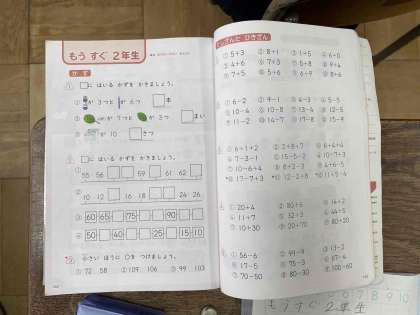 もう すぐ 2年生
かず
□に はいる かずを かきましょう。
① が 3つと が 6つ □本
② が 7つと が 3つ □まい
③ が 10 □さつ
□に はいる かずを かきましょう。
① 55 56 □ □ 59 □ 61 62 □
② 10 12 □ 16 18 □ □ 24 26
③ 60 65 □ 75 □ □ 90 □ □
④ 50 □ 40 □ □ 25 □ 15 10
大きい ほうに ○を つけましょう。
① 72 58 ② 109 106 ③ 99 103
たしざんと ひきざん
① 5+3 ② 8+1 ③ 1+5 ④ 6+0
⑤ 4+6 ⑥ 7+3 ⑦ 5+8 ⑧ 9+4
⑨ 7+5 ⑩ 5+6 ⑪ 6+9 ⑫ 8+6
① 6-2 ② 9-1 ③ 4-3 ④ 5-5
⑤ 10-4 ⑥ 10-8 ⑦ 13-4 ⑧ 12-5
⑨ 11-2 ⑩ 14-7 ⑪ 17-8
① 6+1+2 ② 2+8+7 ③ 6+4+4
④ 7-3-1 ⑤ 15-5-2 ⑥ 10-7+3
⑦ 10-6+4 ⑧ 8+2-3
17-7+3 12-2+8
① 20+4 ② 80+6
④ 11+7 ⑤ 32+3 ⑥ 44+5
⑦ 10+30 ⑧ 20+70 ⑨ 80+20
① 56-6
④ 17-5 ⑤ 75-3
⑦ 70-50 ⑧ 80-30 ⑨ 100-60
もうすぐ2年生